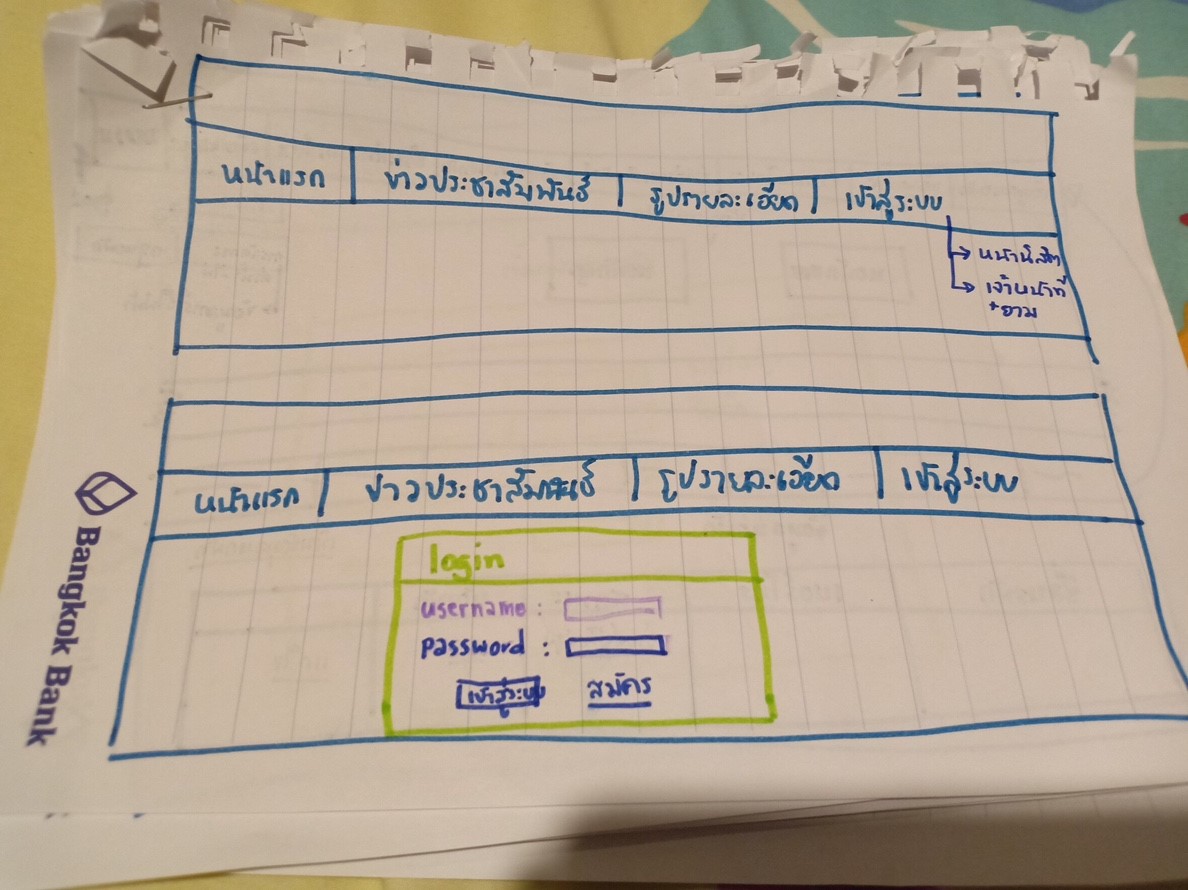 หน้าแรก | ข่าวประชาสัมพันธ์ | รูปรายละเอียด | เข้าสู่ระบบ
→ หน้านิสิต
→ เจ้าหน้าที่
+ยาม
หน้าแรก | ข่าวประชาสัมพันธ์ | รูปรายละเอียด | เข้าสู่ระบบ
login
username :
password :
เข้าสู่ระบบ สมัคร
Bangkok Bank